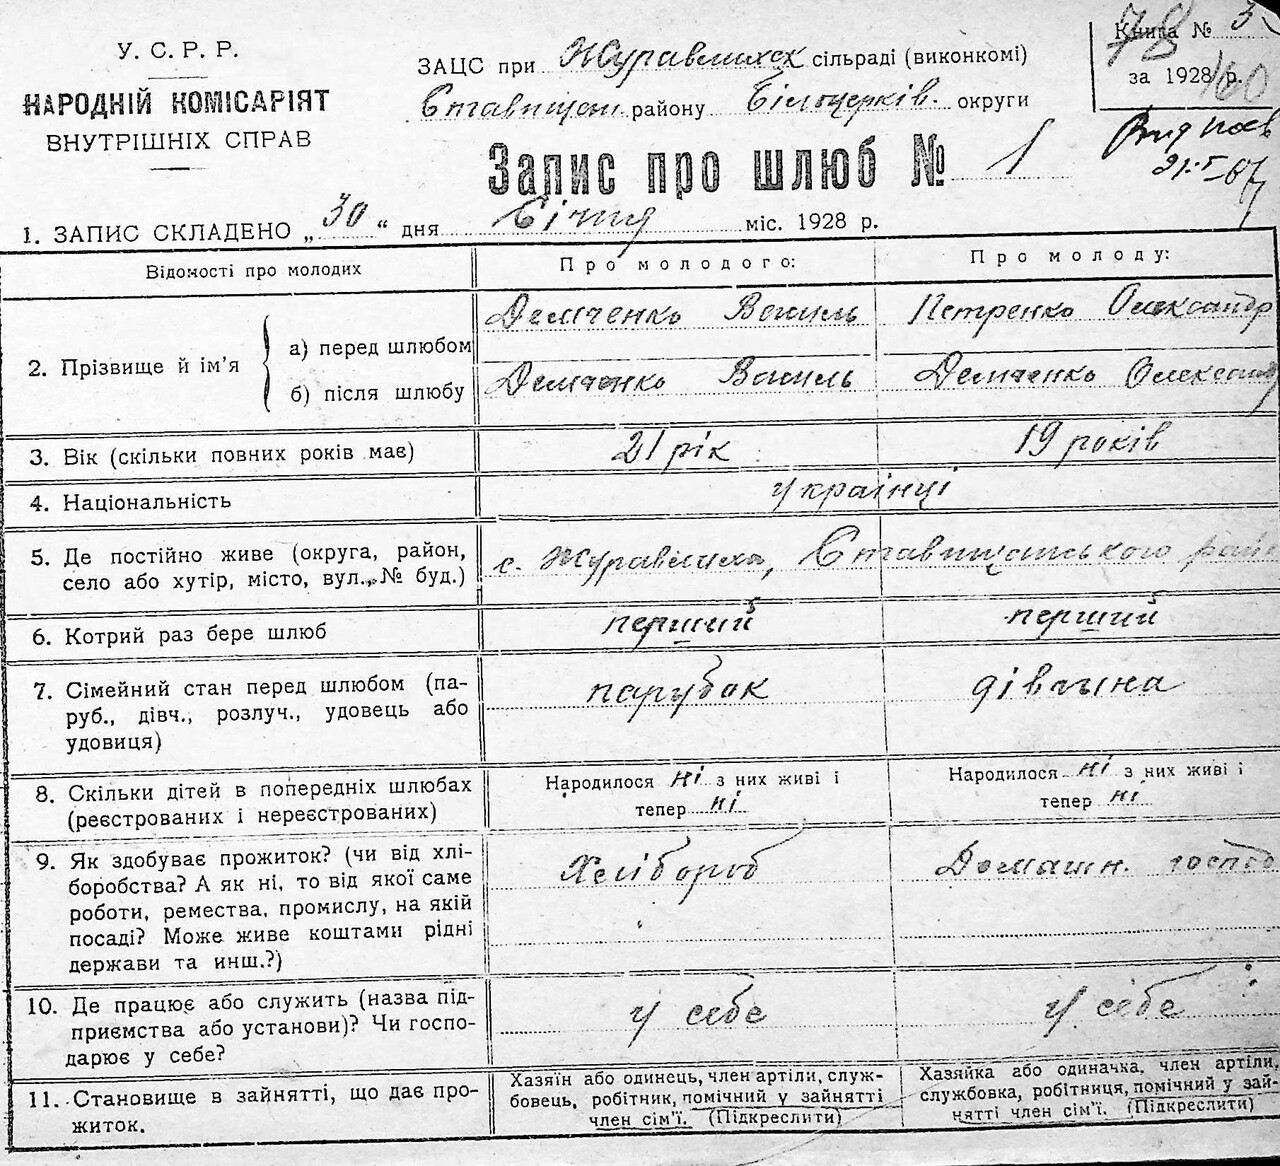 У. С. Р. Р.
НАРОДНІЙ КОМІСАРІЯТ
ВНУТРІШНІХ СПРАВ
ЗАЦС при Журавлихск сільраді (виконкомі)
Ставищан. району Білоцерків. округи
Книга № 3
за 1928 р.
78
160
Запис про шлюб № 1
1. ЗАПИС СКЛАДЕНО „30“ дня Січня міс. 1928 р.
Відомості про молодих
Про молодого:
Про молоду:
2. Прізвище й ім'я
а) перед шлюбом
Демченко Василь
Петренко Олександр
б) після шлюбу
Демченко Василь
Демченко Олександ
3. Вік (скільки повних років має)
21 рік
19 років
4. Національність
українці
5. Де постійно живе (округа, район,
село або хутір, місто, вул., № буд.)
с. Журавлиха, Ставищанського райо
6. Котрий раз бере шлюб
перший
перший
7. Сімейний стан перед шлюбом (па-
руб., дівч., розлуч., удовець або
удовиця)
парубок
дівчина
8. Скільки дітей в попередніх шлюбах
(реєстрованих і нереєстрованих)
Народилося ні з них живі і
тепер ні
Народилося ні з них живі і
тепер ні
9. Як здобуває прожиток? (чи від хлі-
боробства? А як ні, то від якої саме
роботи, ремества, промислу, на якій
посаді? Може живе коштами рідні
держави та инш.?)
Хлібороб
Домашн. господ
10. Де працює або служить (назва під-
приємства або установи)? Чи госпо-
дарює у себе?
у себе
у себе
11. Становище в зайнятті, що дає про-
житок.
Хазяїн або одинець, член артіли, служ-
бовець, робітник, помічний у зайнятті
член сім'ї. (Підкреслити)
Хазяйка або одиначка, член артіли,
службовка, робітниця, помічний у зай-
нятті член сім'ї. (Підкреслити)